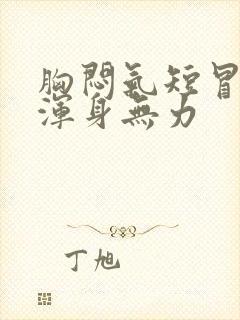 胸悶氣短冒
渾身無力
丁旭